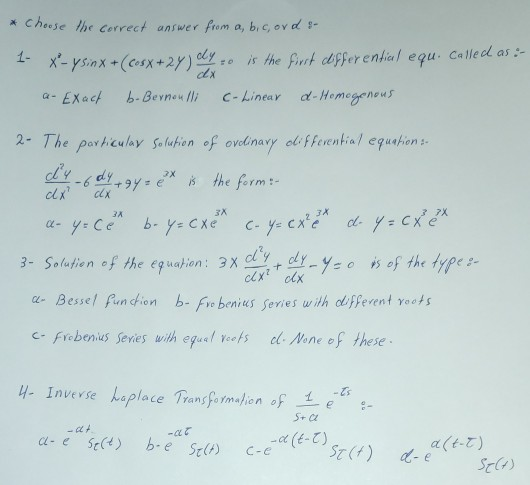 * Choose the correct answer from a, b, c, or d :-
1- x² - y sinx + (cosx + 2y) dy/dx = 0 is the first differential equ. Called as :-
a- Exact b- Bernoulli c- Linear d- Homogenous
2- The particular solution of ordinary differential equation :-
d²y/dx² - 6 dy/dx + 9y = e^3x is the form :-
a- y = Ce^3x b- y = Cxe^3x c- y = Cx²e^3x d- y = Cx³e^3x
3- Solution of the equation: 3x d²y/dx² + dy/dx - y = 0 is of the type :-
a- Bessel function b- Frobenius series with different roots
c- Frobenius series with equal roots d- None of these.
4- Inverse Laplace Transformation of 1/(s+a) e^-τs :-
a- e^-at Sτ(t) b- e^-aτ Sτ(t) c- e^-a(t-τ) Sτ(t) d- e^a(t-τ) Sτ(t)